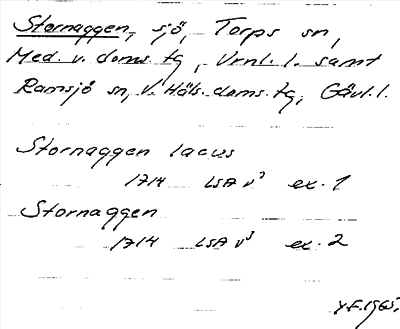 Stornaggen, sjö, Torps sn,
Med. v. doms. tg, Vrnl. l. samt
Ramsjö sn, V. Häls. doms. tg, Gävl. l.
Stornaggen lacus
1714 LSA V³ ex. 1
Stornaggen
1714 LSA V³ ex. 2
1965.